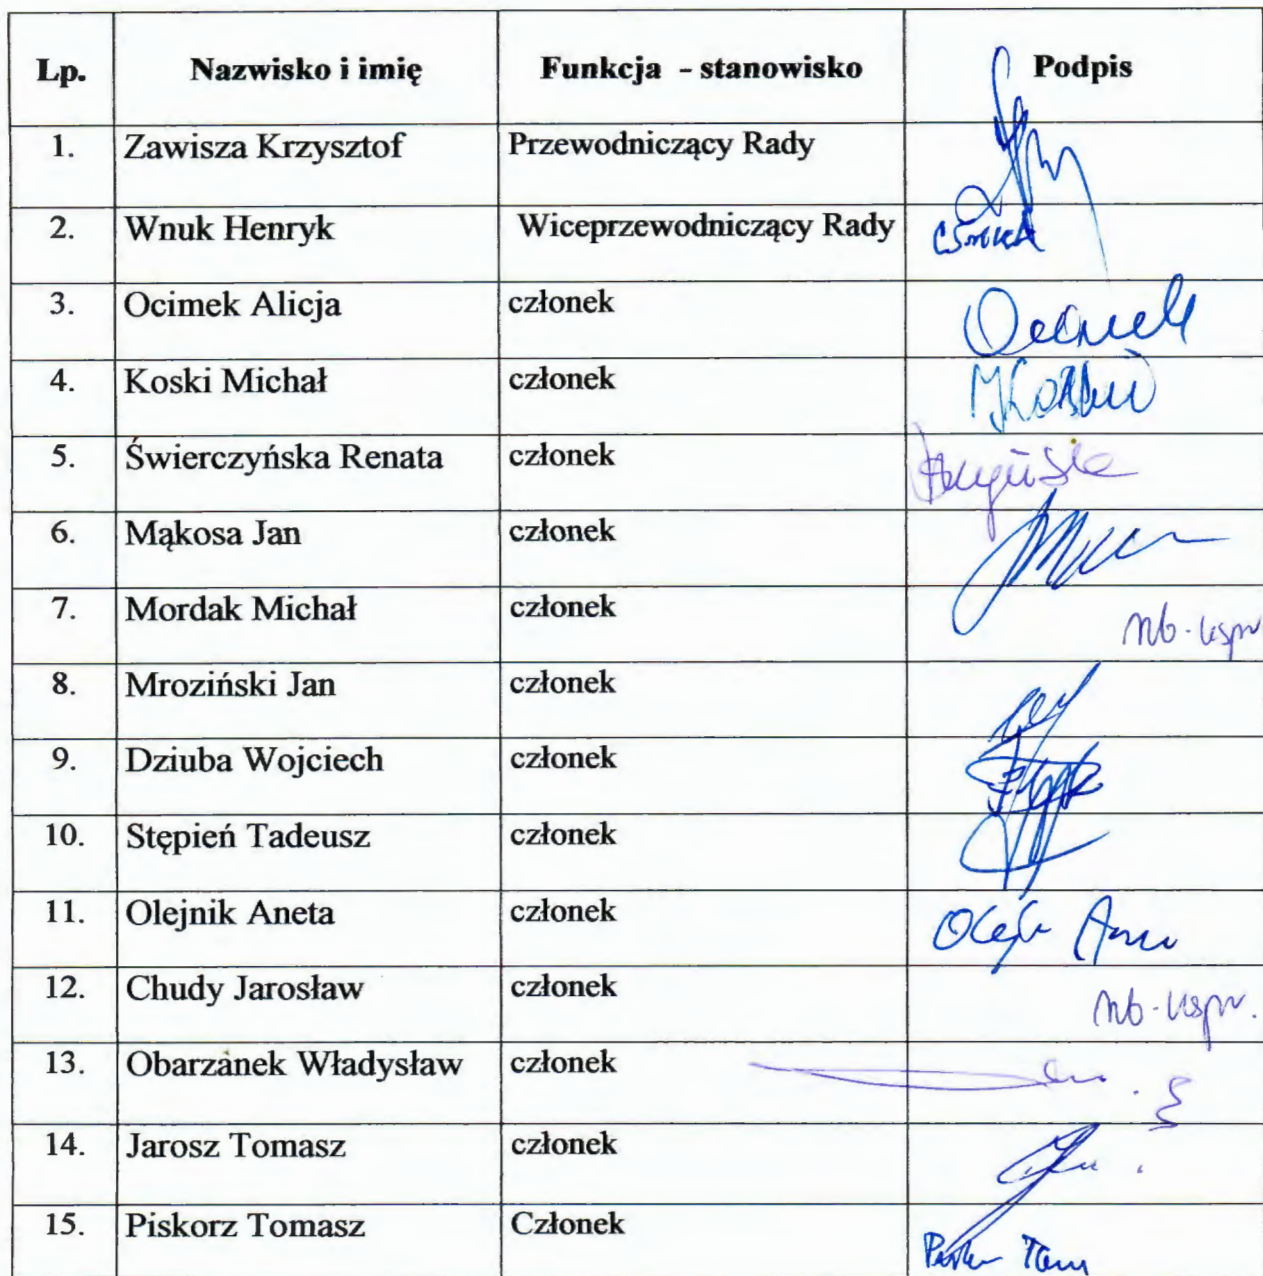 Lp. Nazwisko i imię Funkcja - stanowisko Podpis
1. Zawisza Krzysztof Przewodniczący Rady
2. Wnuk Henryk Wiceprzewodniczący Rady
3. Ocimek Alicja członek
4. Koski Michał członek
5. Świerczyńska Renata członek
6. Mąkosa Jan członek
7. Mordak Michał członek nb-uspr
8. Mroziński Jan członek
9. Dziuba Wojciech członek
10. Stępień Tadeusz członek
11. Olejnik Aneta członek
12. Chudy Jarosław członek nb-uspr.
13. Obarzanek Władysław członek
14. Jarosz Tomasz członek
15. Piskorz Tomasz Członek